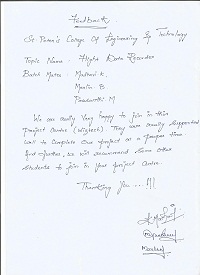 Feedback
St. Peter's College Of Engineering & Technology
Topic Name - Flight Data Recorder
Batch Mates - Madhavi K.
Merlin B.
M
We are really very happy to join in this
project centre (Wigtech). They are really supported
well to complete our project on a proper time.
And further, we will recommend some other
students to join in your project centre.
Thanking you ...!!!